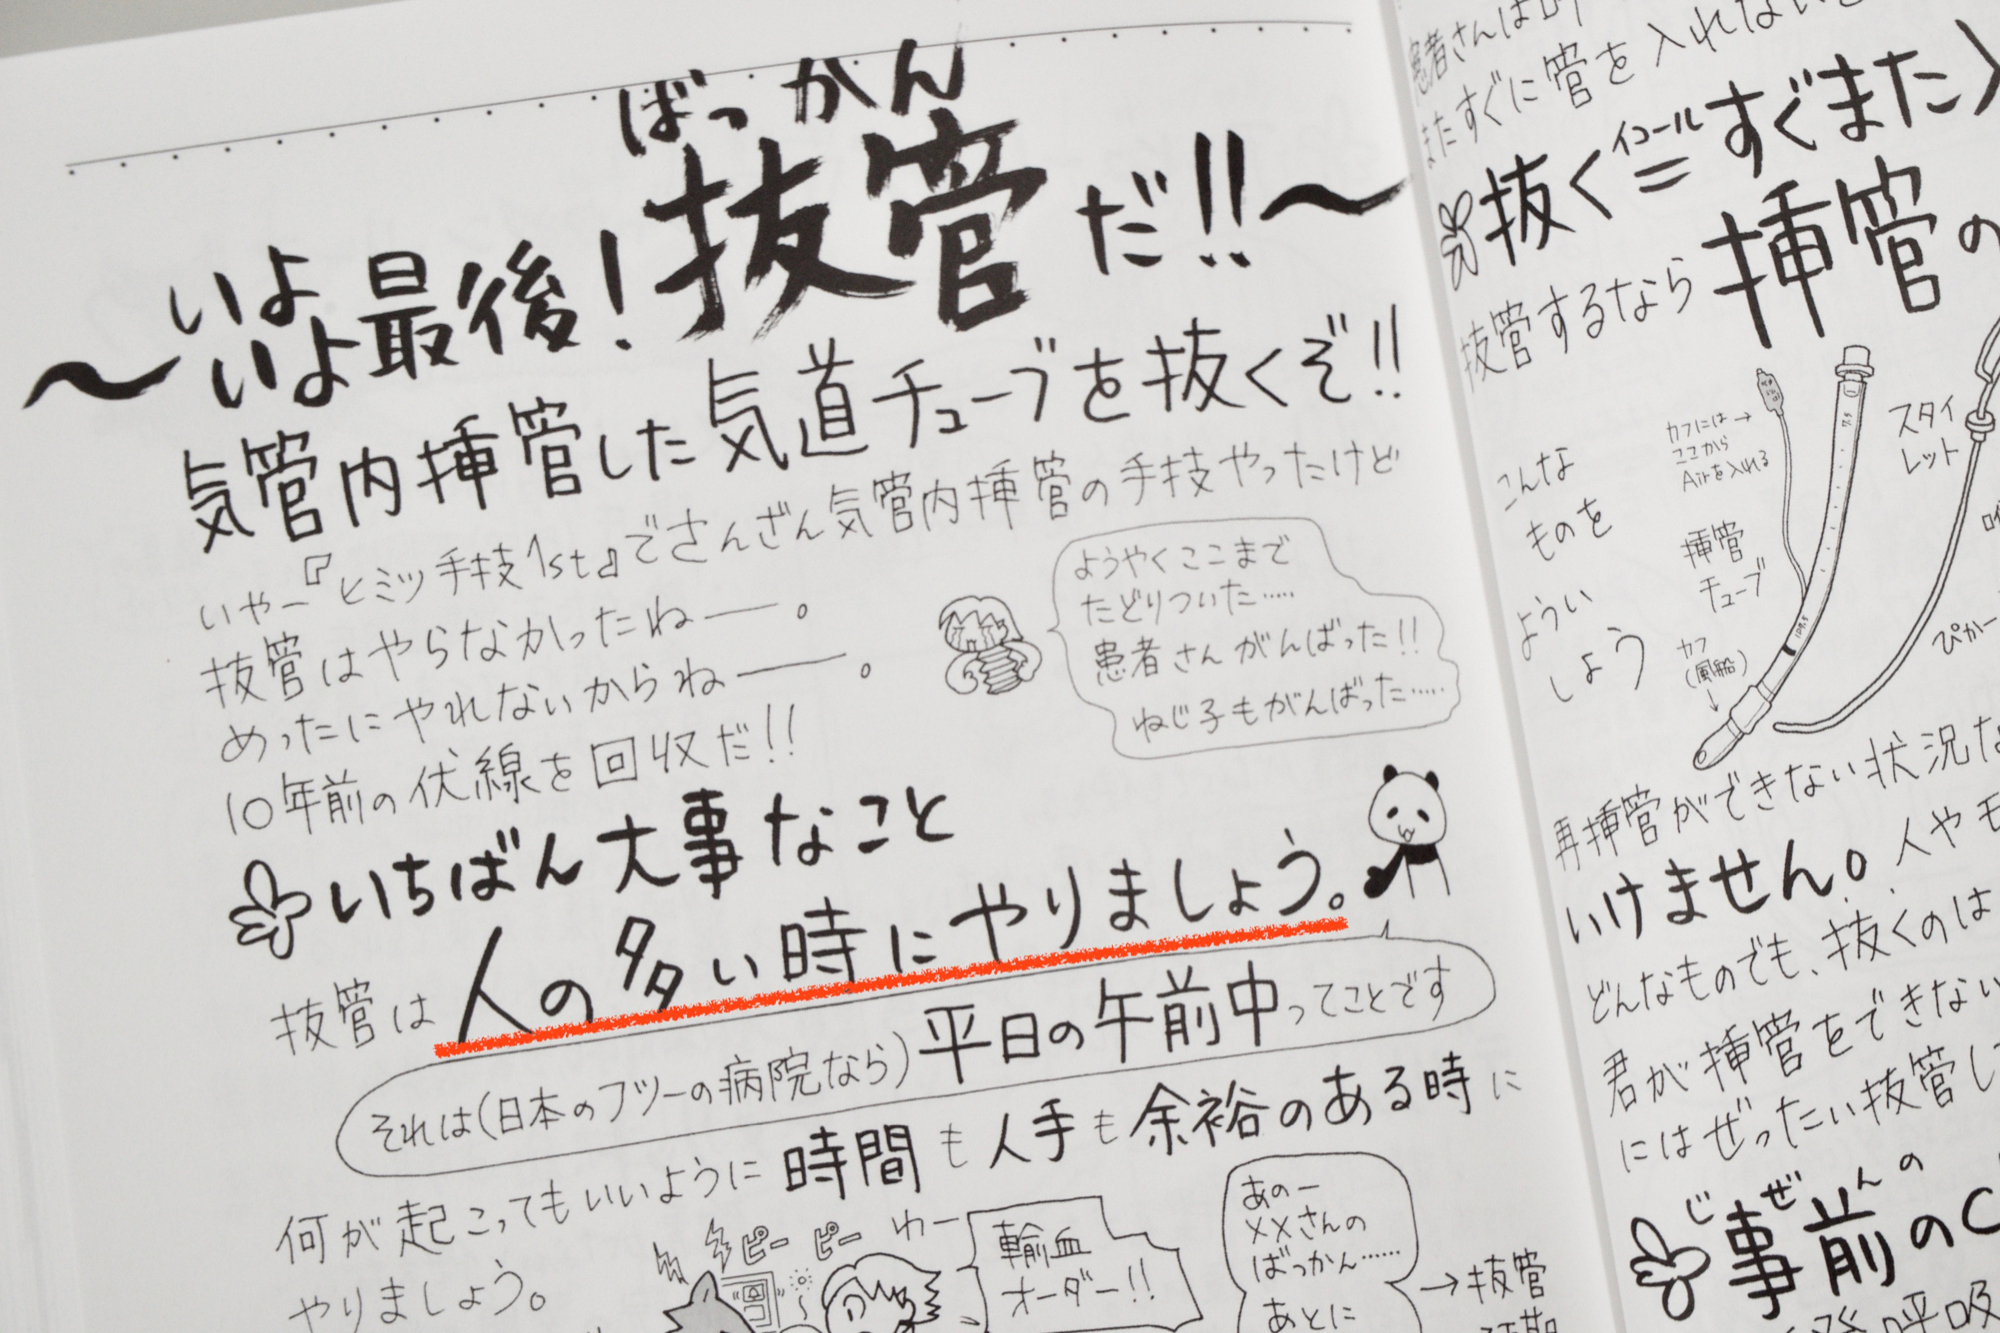 ばっかん
〜いよいよ最後!抜管だ!!〜
気管内挿管した気道チューブを抜くぞ!!
いやー『ヒミツ手技1st』でさんざん気管内挿管の手技やったけど
抜管はやらなかったねー。
めったにやれないからねー。
10年前の伏線を回収だ!!
ようやくここまで
たどりついた……
患者さんがんばった!!
ねじ子もがんばった……
いちばん大事なこと
抜管は人の多い時にやりましょう。
それは(日本のフツーの病院なら)平日の午前中ってことです
何が起こってもいいように時間も人手も余裕のある時に
やりましょう。
ピー ピー わー
輸血
オーダー!!
あのー
××さんの
ばっかん……
あとに
→抜管
患者さんは
またすぐに管を入れないと
抜く=すぐまた入
イコール
抜管するなら挿管の
こんな
ものを
ようい
しょう
カフには→
ここから
Airを入れる
挿管
チューブ
カフ
(風船)
スタイ
レット
ぴかー
再挿管ができない状況な
いけません。人やモ
どんなものでも、抜くのは
君が挿管をできない
にはぜったい抜管し
じぜんの
事前のC
呼吸